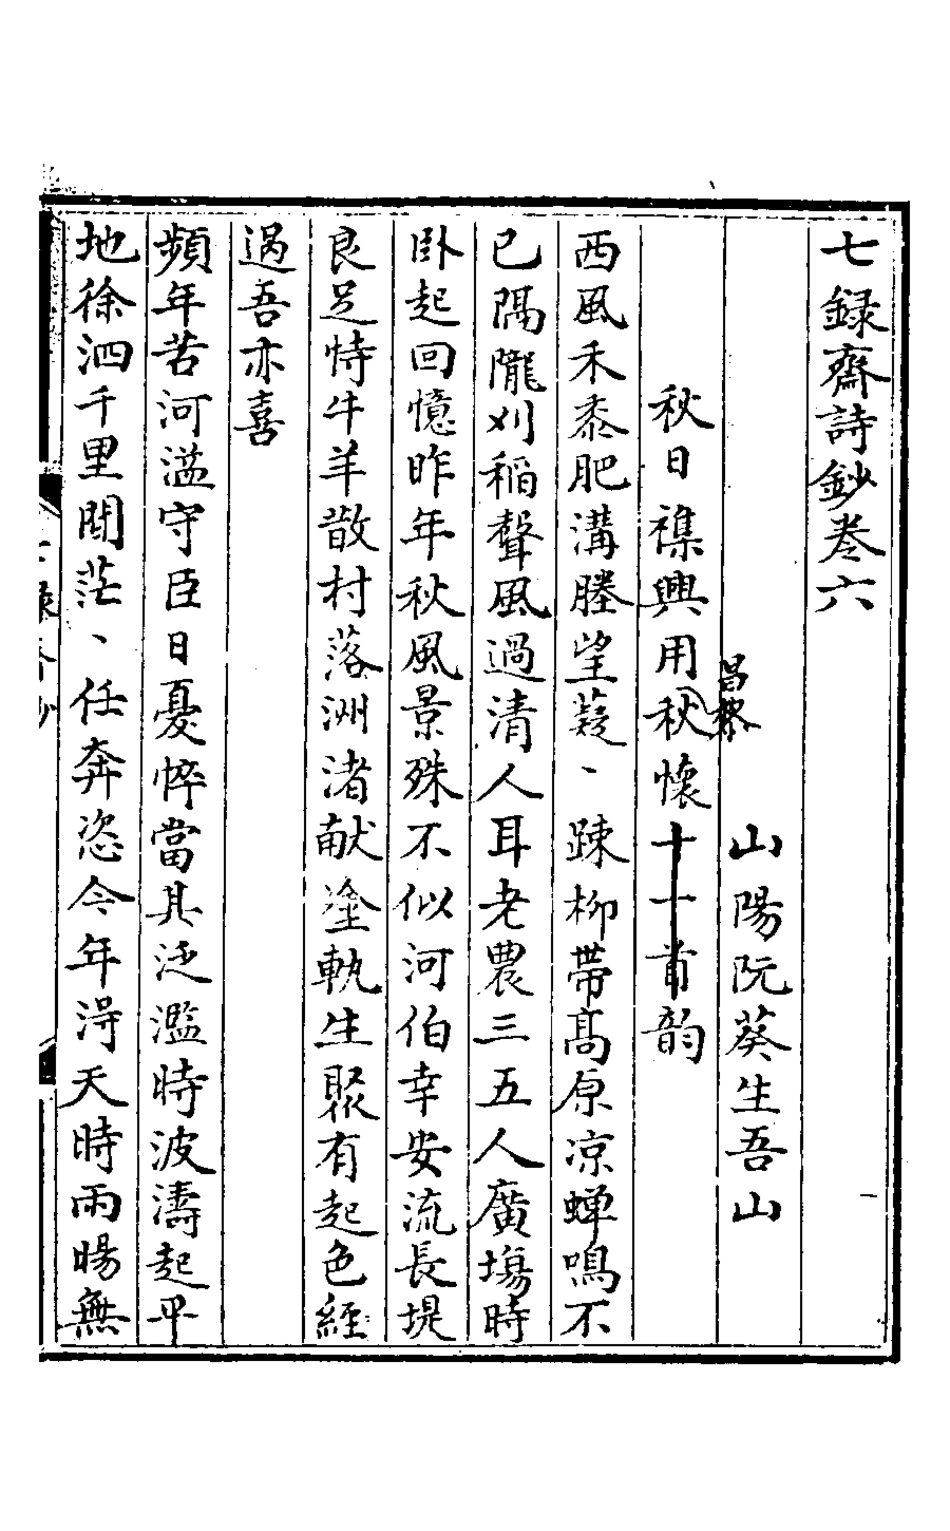 七録齋詩鈔卷六
山陽阮葵生吾山
秋日襍興用昌黎秋懷十一首韵
西風禾黍肥溝塍望薿、疎柳帶髙原凉蟬鳴不
已隔隴刈稻聲風過清人耳老農三五人廣塲時
卧起回憶昨年秋風景殊不似河伯幸安流長堤
良足恃牛羊散村落洲渚献塗軌生聚有起色經
過吾亦喜
頻年苦河溢守臣日憂悴當其泛濫時波濤起平
地徐泗千里間茫、任奔恣今年淂天時雨暘無